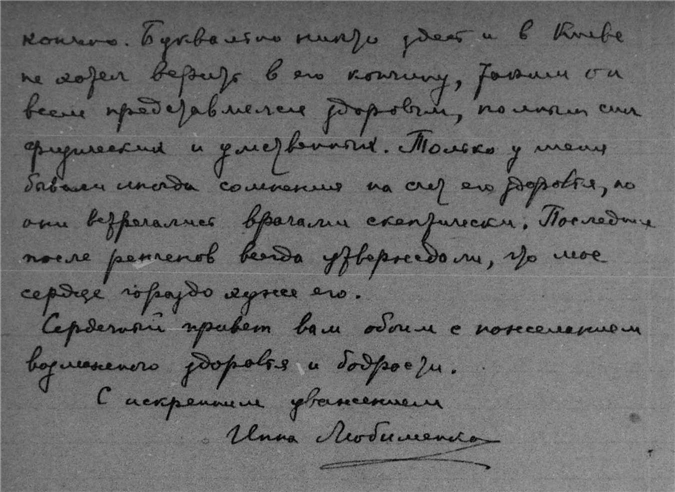 кончино. Буквально никто здесь и в Киеве
не хотел верить в его кончину, таким он
всем представлялся здоровым, полным сил
физических и умственных. Только у меня
бывали иногда сомнения на счет его здоровья, но
они встречались врачами скептически. Последние
после рентгенов всегда утверждали, что мое
сердце гораздо хуже его.
Сердечный привет вам обоим с пожеланием
возможного здоровья и бодрости.
С искренним уважением
Инна Любименко